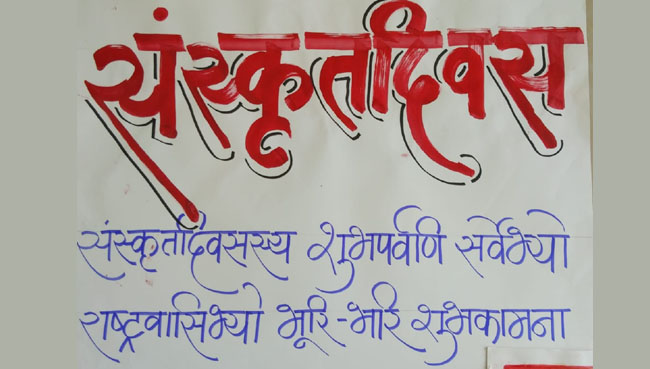 संस्कृतदिवस
संस्कृतदिवसस्य शुभपर्वणि सर्वेभ्यो
राष्ट्रवासिभ्यो भूरि-भरि शुभकामना